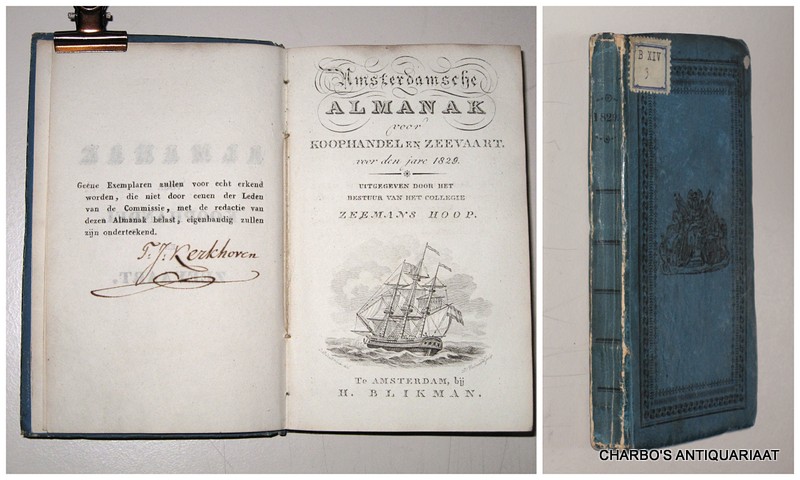 Geene Exemplaren zullen voor echt erkend
worden, die niet door eenen der Leden
van de Commissie, met de redactie van
dezen Almanak belast, eigenhandig zullen
zijn onderteekend.
T. J. Kerkhoven
Amsterdamsche
ALMANAK
voor
KOOPHANDEL EN ZEEVAART.
voor den jare 1829.
UITGEGEVEN DOOR HET
BESTUUR VAN HET COLLEGIE
ZEEMANS HOOP.
Te AMSTERDAM, bij
H. BLIKMAN.
B XIV
3.
1829
CHARBO'S ANTIQUARIAAT